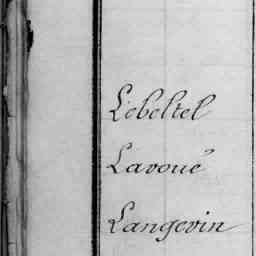 Lebeltel
Lavoué
Langevin